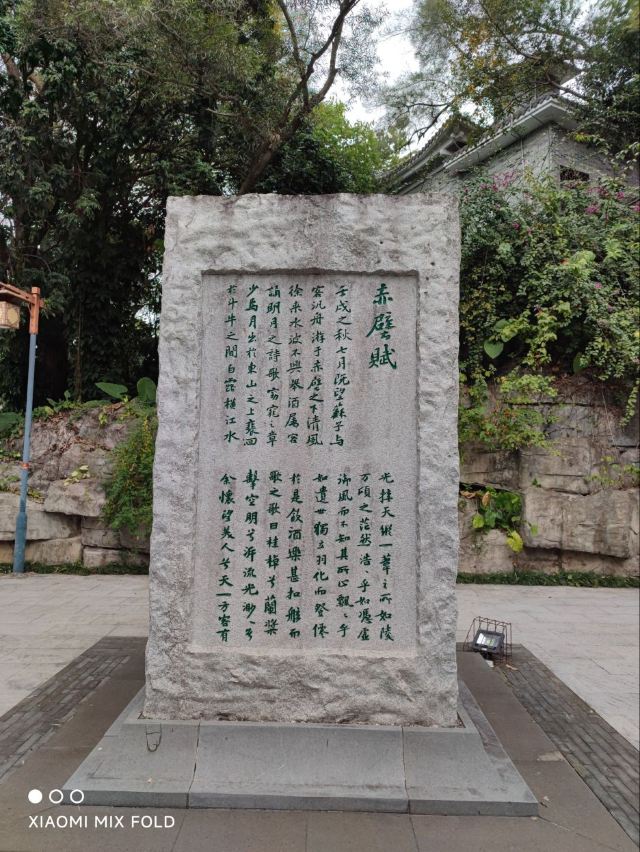 赤壁賦
壬戌之秋七月既望蘇子與
客汎舟游于赤壁之下清風
徐來水波不興舉酒属客
誦明月之詩歌窈窕之章
少焉月出於東山之上裵回
於斗牛之間白露橫江水
光接天縱一葦之所如陵
万頃之茫然浩〻乎如憑虛
御風而不知其所止飄〻乎
如遺世獨立羽化而登僊
於是飲酒樂甚扣舷而
歌之歌曰桂棹兮蘭槳
擊空明兮泝流光渺〻兮
余懷望美人兮天一方客有
XIAOMI MIX FOLD